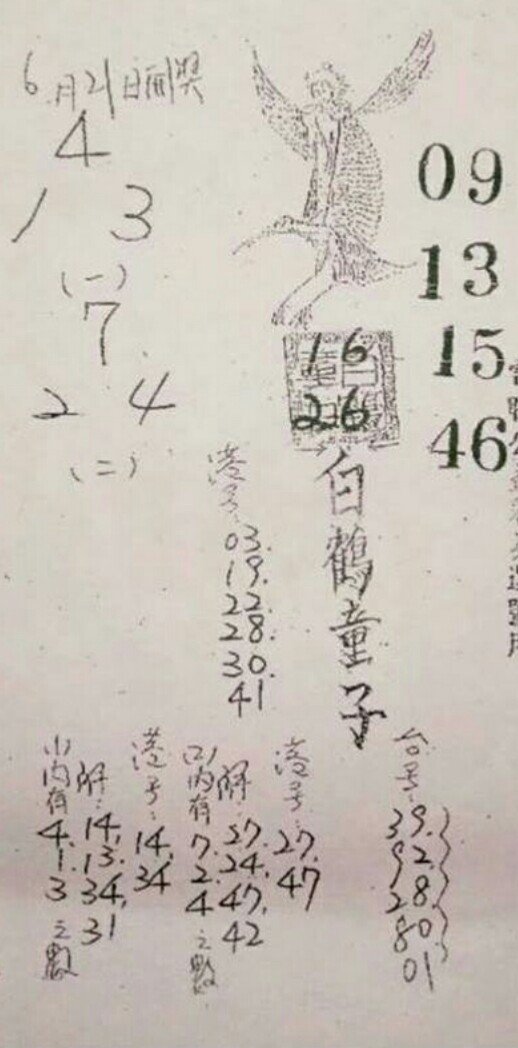 6月21日開獎
4
1 3
(一)
7
2 4
(二)
09
13
15
46
16
26
白鶴童子
港号:
03.
19.
22.
28.
30.
41
(1)內有
4.
1.
3
之數
解:
14.
13.
34.
31
港号:
14.
34
(2)內有
7.
2.
4
之數
解:
27.
24.
47.
42
港号:
27.
47
台号:
39.
92.
28.
80
01